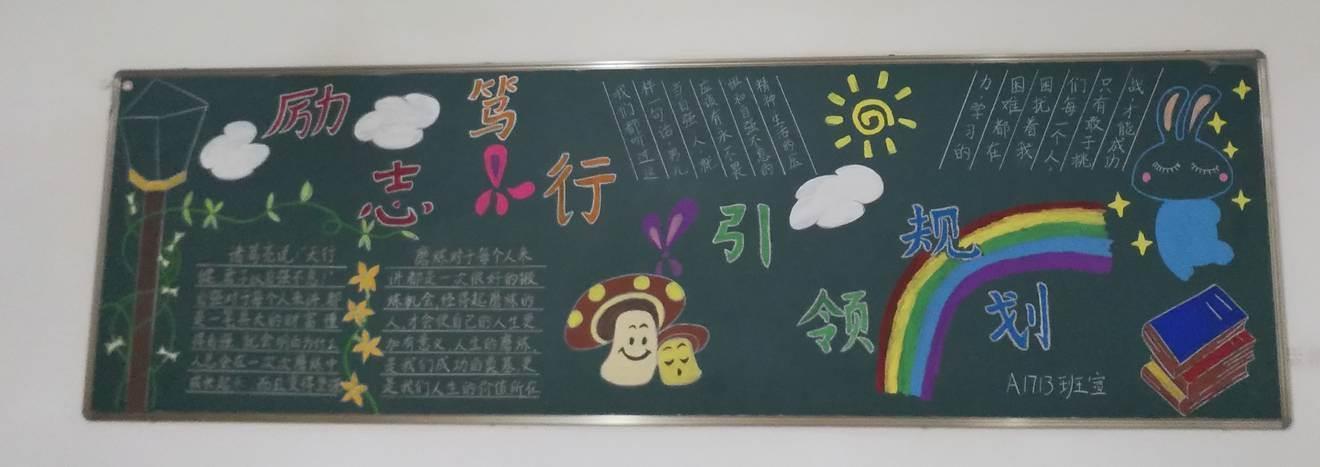 励志
笃行
引领
规划
诸葛亮说:“天行
健,君子以自强不息”
自强对于每个人来讲,都
是一笔巨大的财富,懂
得自强,就会明白为什么
人总会在一次次磨练中
成长起来,而且变得坚强
磨练对于每个人来
讲都是一次很好的锻
炼机会,经得起磨练的
人,才会使自己的人生更
加有意义,人生的磨练,
是我们成功的奠基更
是我们人生的价值所在
我们都听过这
样一句话:男儿
当自强,人就
应该有永不气
馁和自强不息的
精神,生活的应
力,学习的
困难都在
困扰着我
们每一个人,
只有敢于挑
战,才能成功
A1713班宣